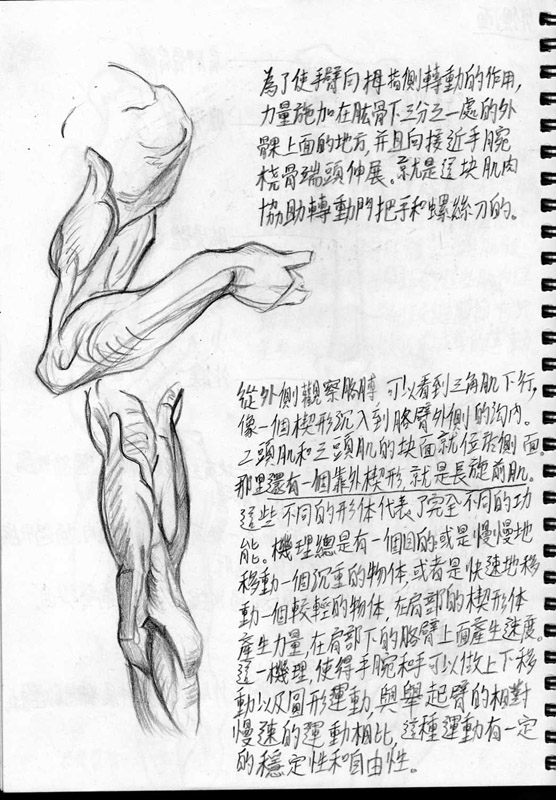 為了使手臂向拇指側轉動的作用,
力量施加在肱骨下三分之一處的外
髁上面的地方,并且向接近手腕
桡骨端頭伸展。就是這块肌肉
協助轉動門把手和螺絲刀的。
從外側觀察胳膊,可以看到三角肌下行,
像一個楔形沉入到胳臂外側的沟内。
二頭肌和三頭肌的块面就位於側面。
那里還有一個靠外楔形,就是長旋前肌。
這些不同的形体代表了完全不同的功
能。機理總是有一個目的:或是慢慢地
移動一個沉重的物体,或者是快速地移
動一個較輕的物体,在肩部的楔形体
產生力量,在肩部下的胳臂上面產生速度。
這一機理,使得手腕和手可以做上下移
動以及圓形運動,與舉起臂的相對
慢速的運動相比,這種運動有一定
的穩定性和自由性。